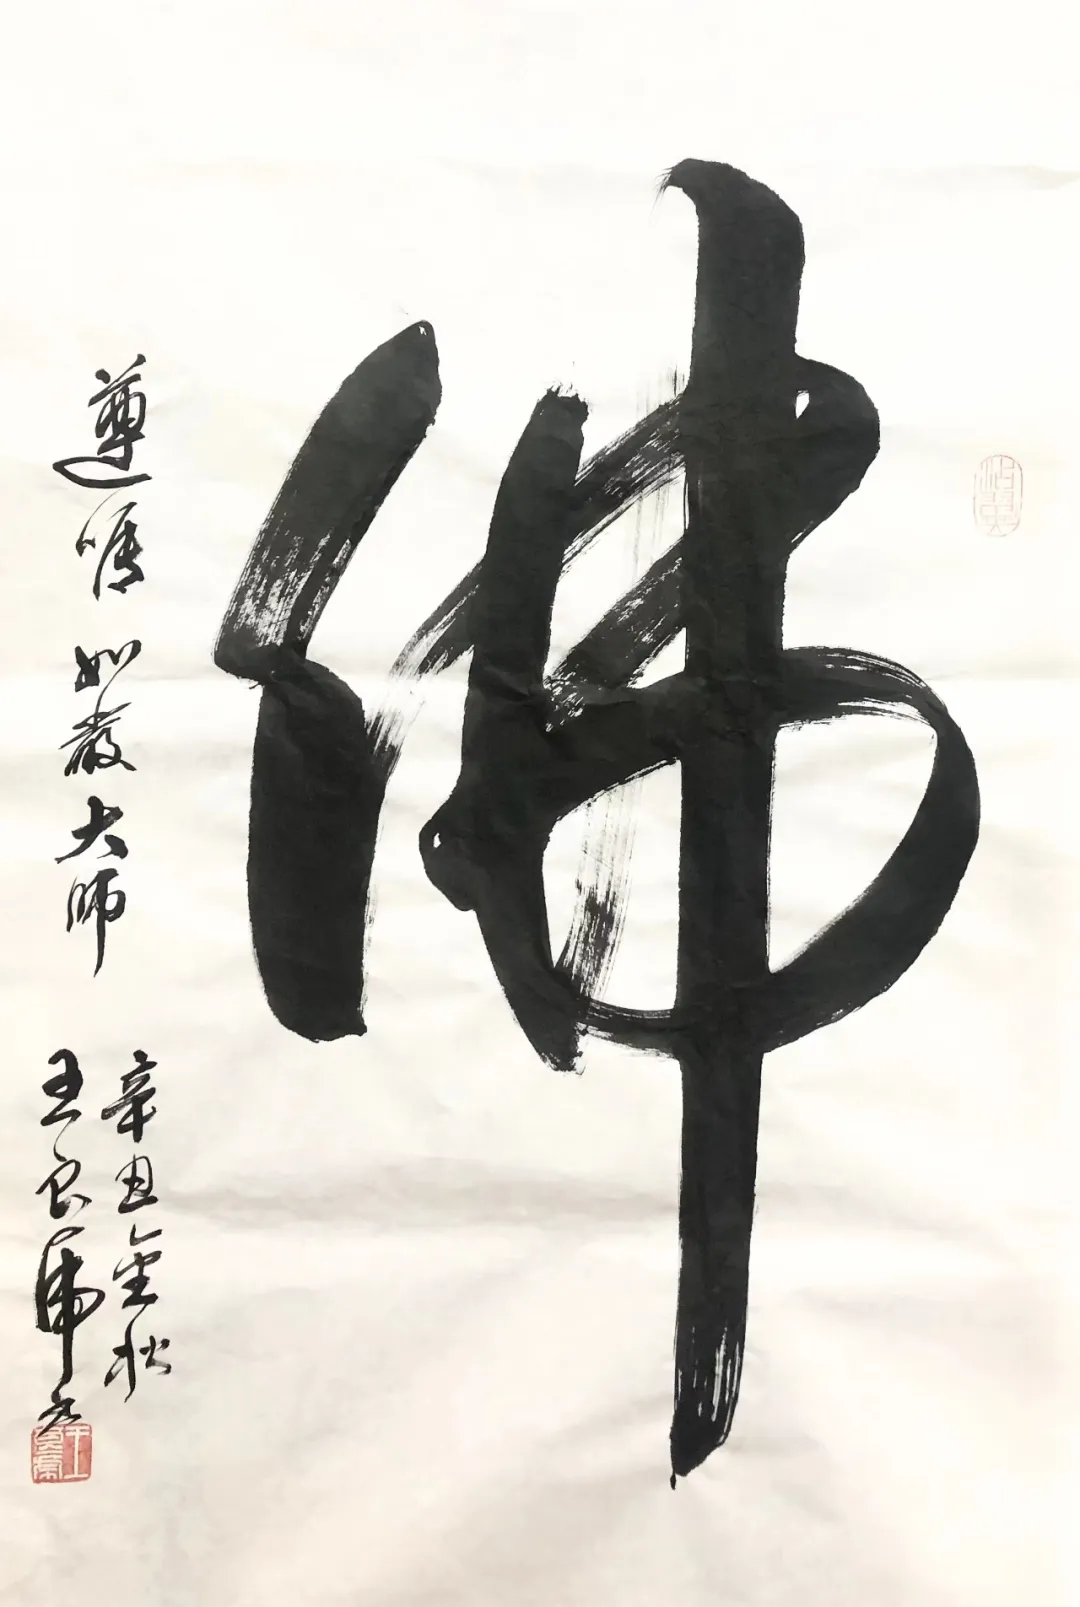 佛
遵嘱 如 大师
辛丑金秋
王良虎书